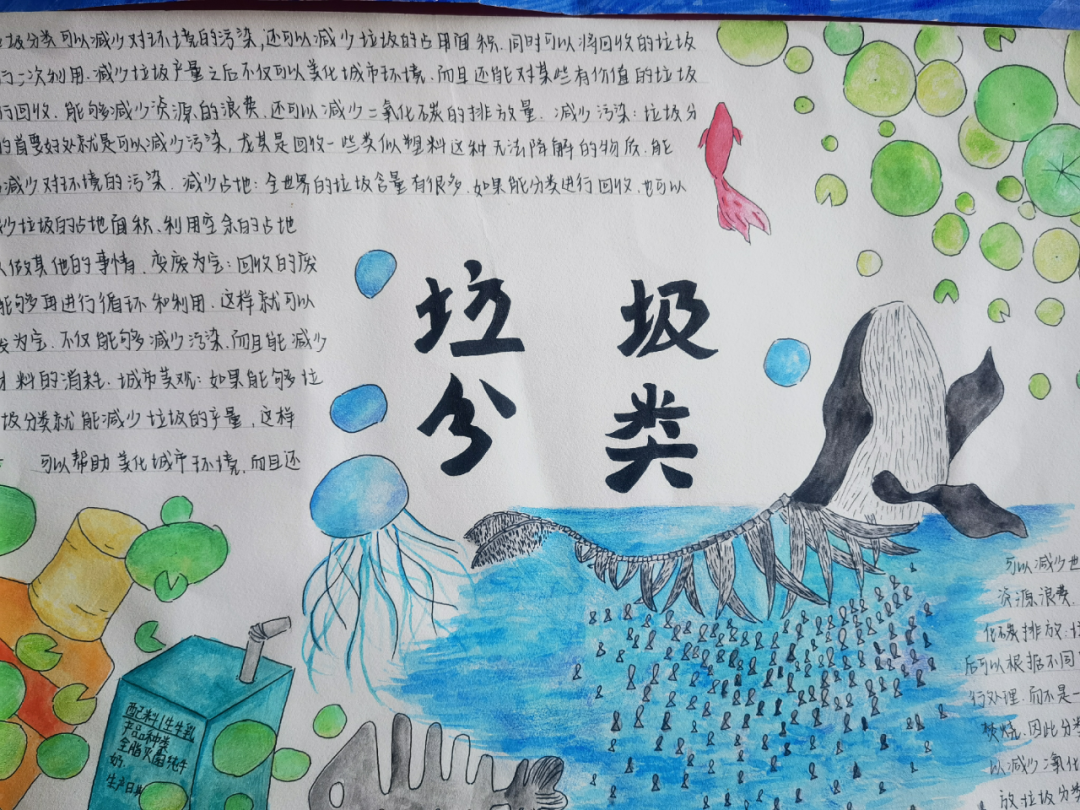 圾分类可以减少对环境的污染,还可以减少垃圾的占用面积.同时可以将回收的垃圾
二次利用.减少垃圾产量之后不仅可以美化城市环境.而且还能对某些有价值的垃圾
行回收.能够减少资源的浪费.还可以减少二氧化碳的排放量.减少污染:垃圾分
的首要好处就是可以减少污染,尤其是回收一些类似塑料这种无法降解的物质.能
减少对环境的污染.减少占地:全世界的垃圾含量有很多.如果能分类进行回收.也可以
少垃圾的占地面积、利用空余的占地
做其他的事情.变废为宝:回收的废
能够再进行循环和利用.这样就可以
为宝.不仅能够减少污染.而且能减少
料的消耗.城市美观:如果能够垃
圾分类就能减少垃圾的产量,这样
可以帮助美化城市环境,而且还
垃圾
分类
配料:生牛乳
产品种类
全脂灭菌纯牛
奶.
生产日期
可以减少
资源浪费.
化碳排放.
后可以根据不同
行处理.而不是一
焚烧.因此分类
以减少二氧化
放垃圾分类